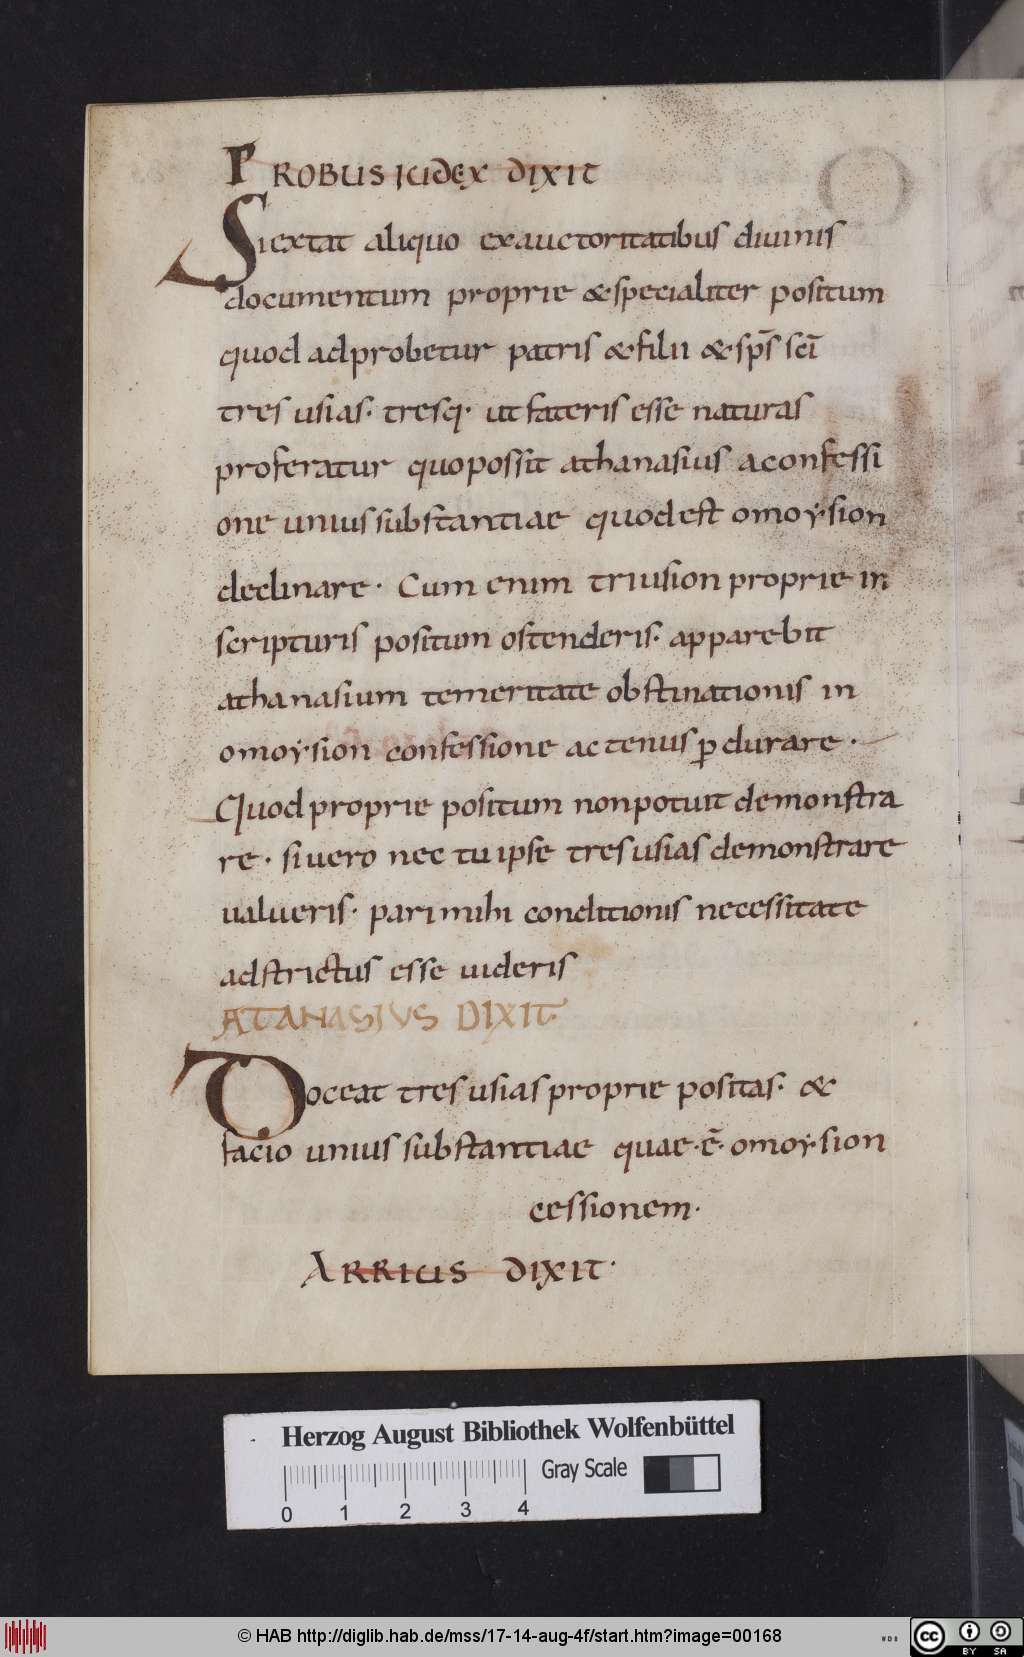 PROBUS IUDEX DIXIT
Si extat aliquo ex auctoritatibus diuinis
documentum proprie & specialiter positum
quod adprobetur patris & filii & sp̄s sc̄i
tres usias· tresq· ut fateris esse naturas
proferatur quo possit athanasius a confessi
one unius substantiae quod est omoysion
declinare· Cum enim triusion proprie in
scripturis positum ostenderis· apparebit
athanasium temeritate obstinationis in
omoysion confessione actenus ꝑdurare·
Quod proprie positum non potuit demonstra
re· si uero nec tu ipse tres usias demonstrare
ualueris· pari mihi conditionis necessitate
adstrictus esse uideris
ATANASIVS DIXIT·
Doceat tres usias proprie positas· &
facio unius substantiae quae·ē· omoysion
cessionem·
ARRIUS DIXIT·
Herzog August Bibliothek Wolfenbüttel
Gray Scale
0 1 2 3 4
© HAB http://diglib.hab.de/mss/17-14-aug-4f/start.htm?image=00168
WDB
cc BY SA